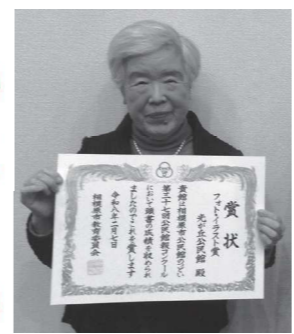 賞状
フォト・イラスト賞
光が丘公民館 殿
貴館は相模原市公民館のつどい
第三十七回公民館報コンクール
において頭書の成績を収められ
ましたのでこれを賞します
令和八年二月七日
相模原市教育委員会